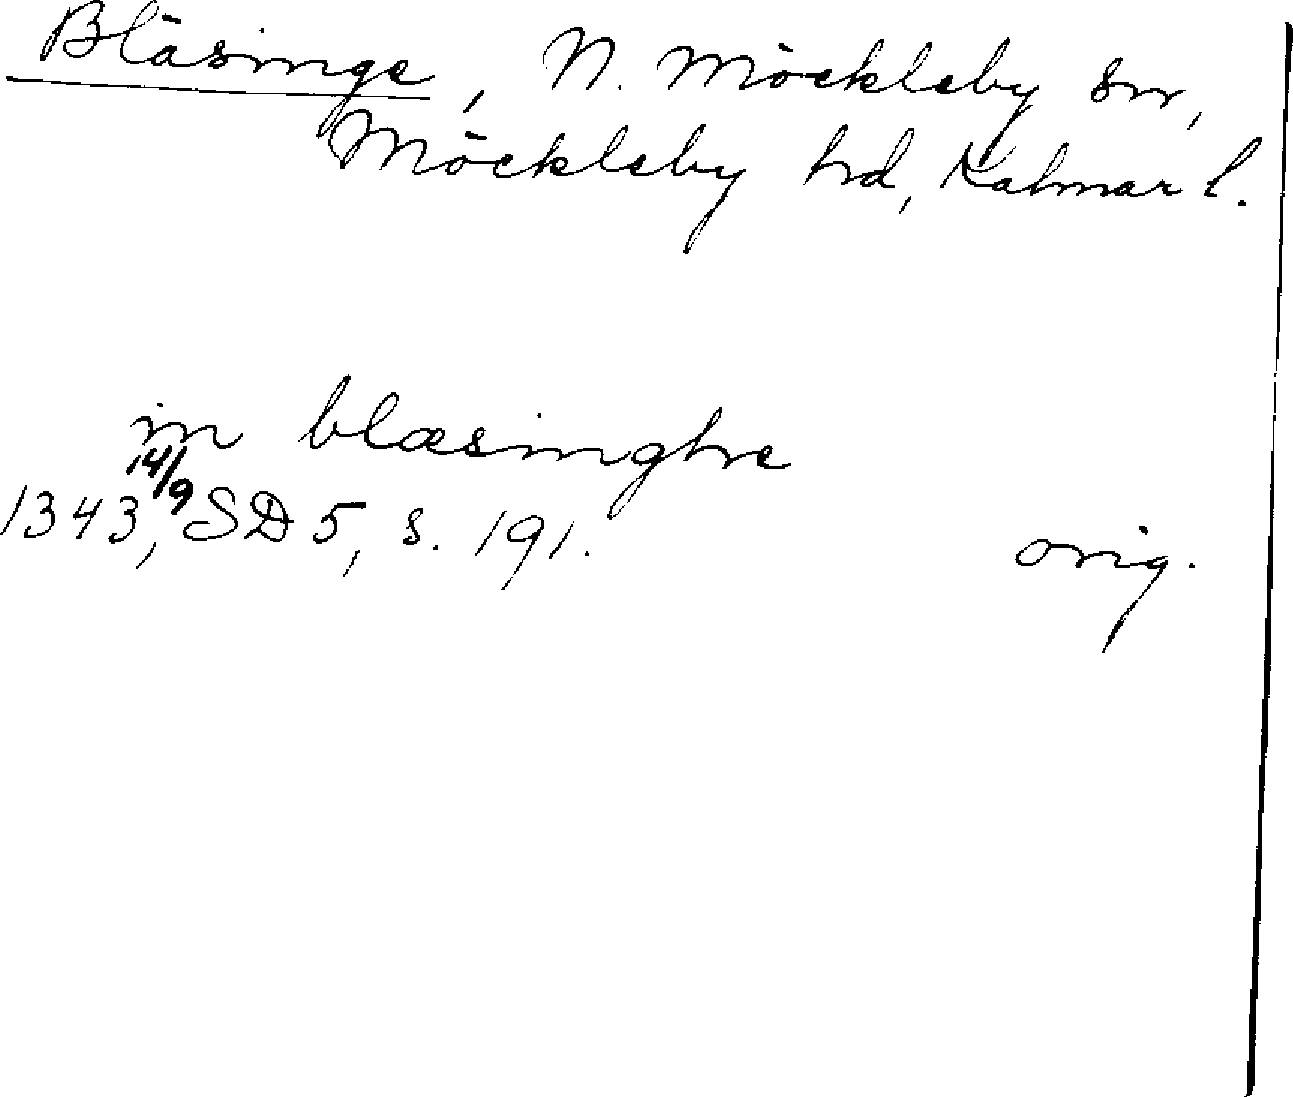 Bläsinge, N. Möckleby sn,
Möckleby hd, Kalmar l.
in blæsinghe
1343 14/9, SD 5, s. 191. orig.